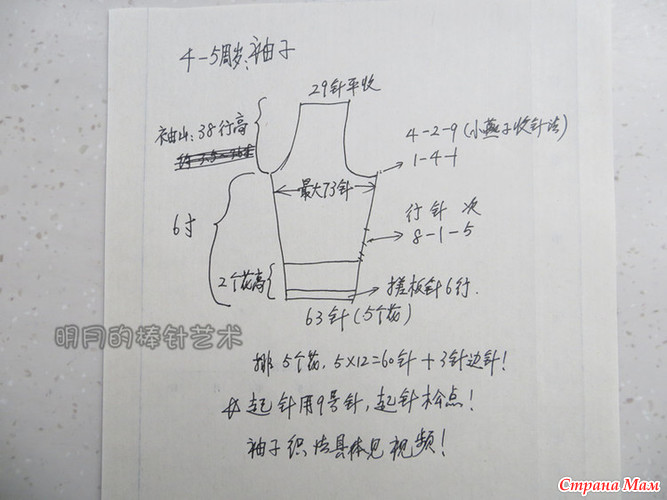 4-5周岁:袖子
29针平收
袖山:38行高
4-2-9(小燕子收针法)
1-4-1
最大73针
行 针 次
8-1-5
6寸
2个花高
搓板针6行.
63针(5个花)
明月的棒针艺术
排5个花,5×12=60针+3针边针!
起针用9号针,起针松点!
袖子织法具体见视频!
Страна Мам